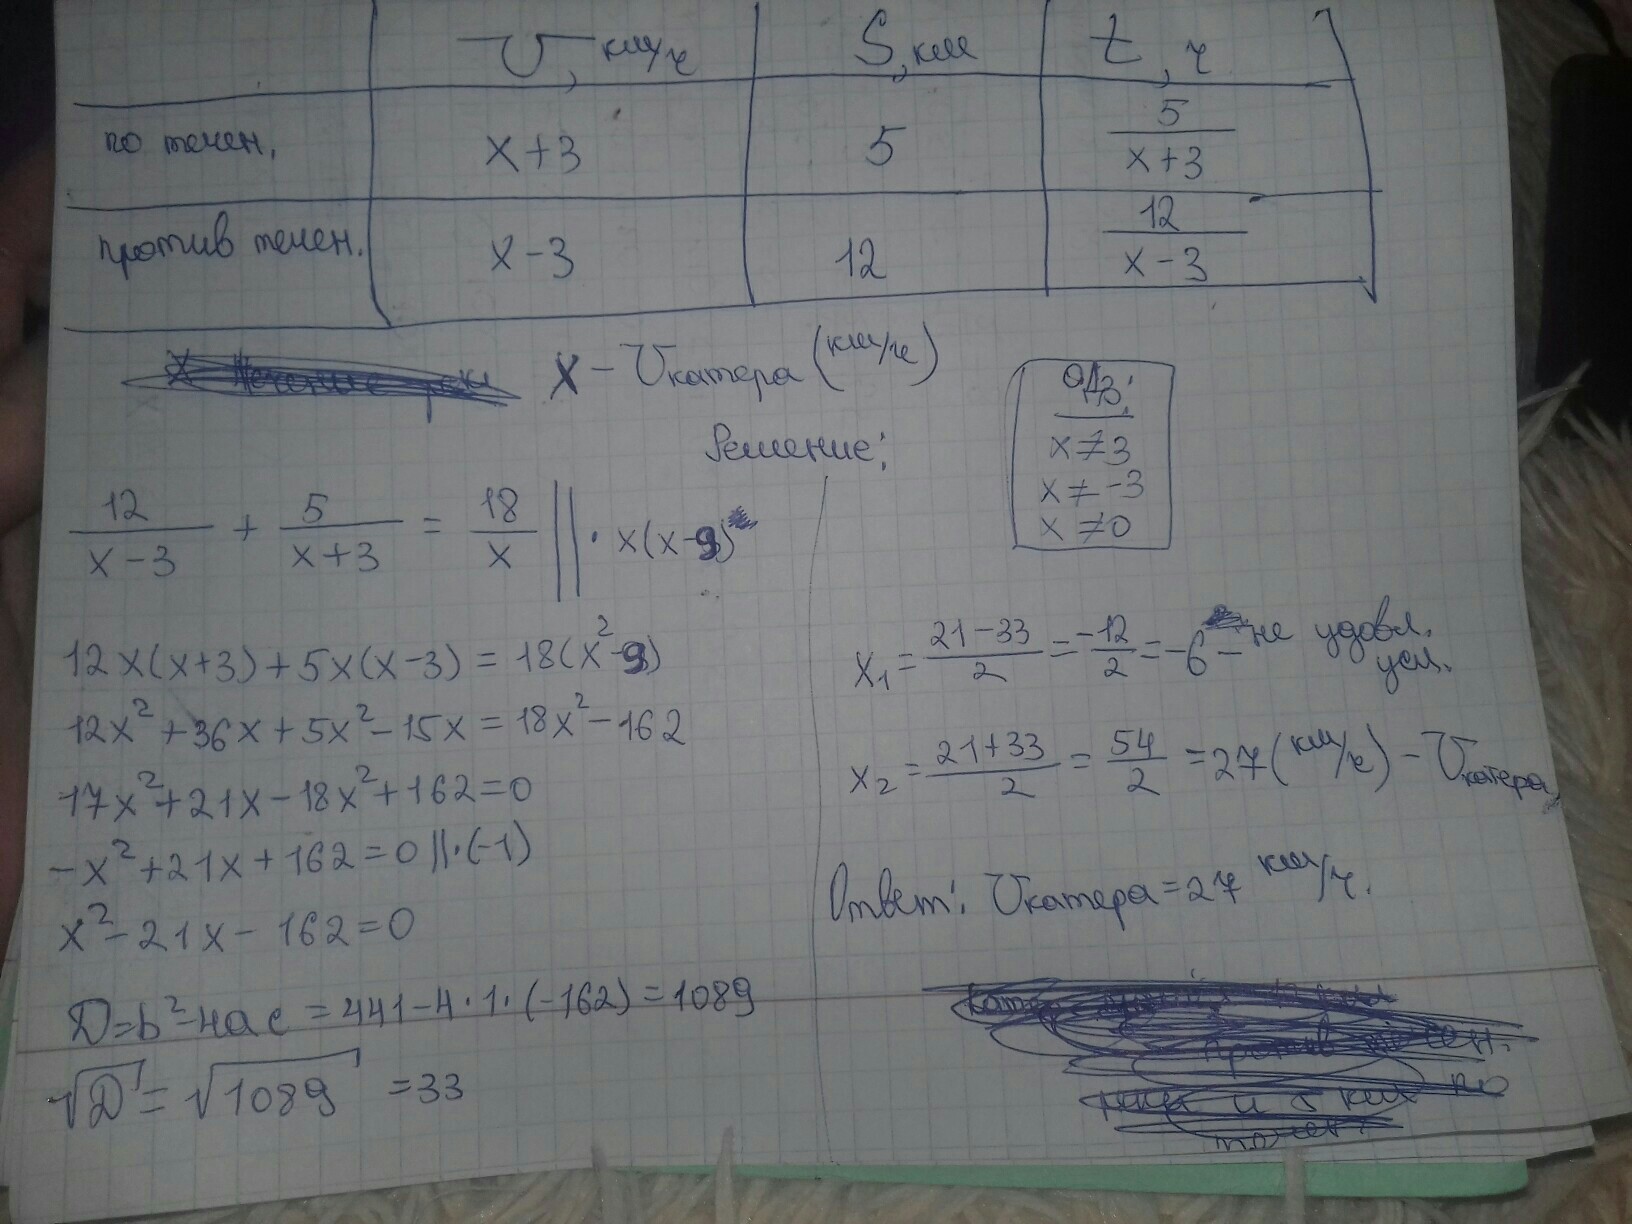 V, км/ч S, км t, ч
по течен. x+3 5 5/(x+3)
против течен. x-3 12 12/(x-3)
X - Vкатера (км/ч)
ОДЗ:
x≠3
x≠-3
x≠0
Решение:
12/(x-3) + 5/(x+3) = 18/x || · x(x-9)
12x(x+3)+5x(x-3)=18(x²-9)
12x²+36x+5x²-15x=18x²-162
17x²+21x-18x²+162=0
-x²+21x+162=0 ||·(-1)
x²-21x-162=0
D=b²-4ac=441-4·1·(-162)=1089
√D=√1089=33
x₁=(21-33)/2=-12/2=-6 - не удовл. усл.
x₂=(21+33)/2=54/2=27(км/ч)-Vкатера
Ответ: Vкатера=27 км/ч.